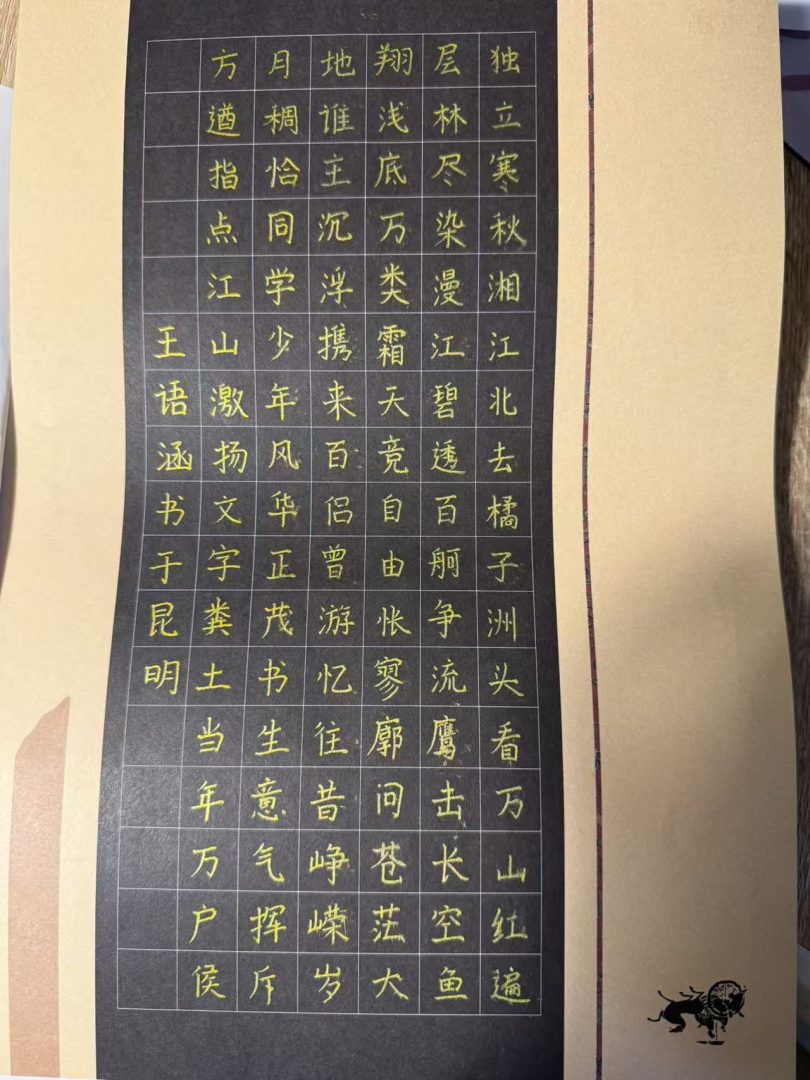 独立寒秋湘江北去橘子洲头看万山红遍
层林尽染漫江碧透百舸争流鹰击长空鱼
翔浅底万类霜天竞自由怅寥廓问苍茫大
地谁主沉浮携来百侣曾游忆往昔峥嵘岁
月稠恰同学少年风华正茂书生意气挥斥
方遒指点江山激扬文字粪土当年万户侯
王语涵书于昆明